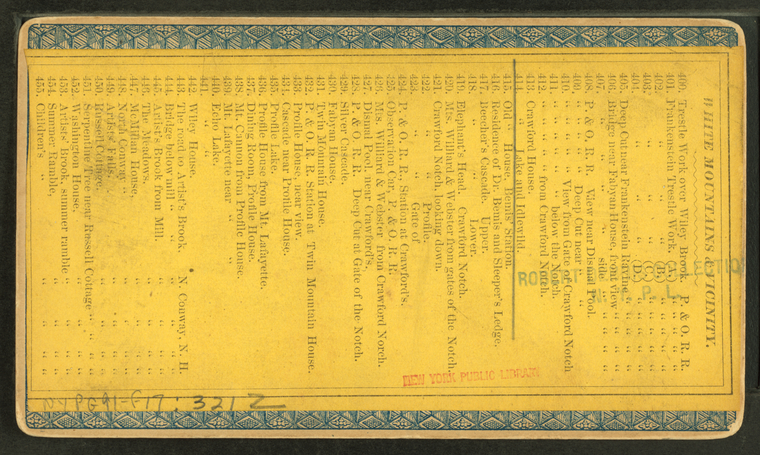 WHITE MOUNTAINS & VICINITY.
400. Trestle Work over Wiley Brook. P. & O. R. R.
401. Frankenstein Trestle Work. (A.) " "
402. " " " (B.) " "
403. " " " (C.) " "
404. " " " (D.) " "
405. Deep Cut near Frankenstein Ravine. " "
406. Bridge near Fabyan House, front view " "
407. " " " side " " "
408. P. & O. R. R. View near Dismal Pool.
409. " " Deep Cut near " "
410. " " View from Gate of Crawford Notch
411. " " below the Notch.
412. " " from Crawford Notch.
413. Crawford House.
414. " " Lake and Idlewild.
415. Old " House, Bemis' Station.
416. Residence of Dr. Bemis and Sleeper's Ledge.
417. Beecher's Cascade. Upper.
418. " " Lower
419. Elephant's Head. Crawford Notch.
420. Mts. Williard & Webster from gates of the Notch.
421. Crawford Notch, looking down.
422. " " Profile.
423. " " Gate of
424. P. & O. R. R., Station at Crawford's.
425. Observation Car, P. & O. R. R.
426. Mts. Willard & Webster from Crawford Notch.
427. Dismal Pool, near Crawford's.
428. P. & O. R. R. Deep Cut at Gate of the Notch.
429. Silver Cascade.
430. Fabyan House.
431. Twin Mountain House.
432. P. & O. R. R. Station at Twin Mountain House.
433. Profile House, near view.
434. Cascade near Profile House.
435. Profile Lake.
436. Profile House from Mt. Lafayette.
437. Dining Room, Profile House.
438. Mt. Cannon from Profile House.
439. Mt. Lafayette near " "
440. Echo Lake.
441. " "
442. Wiley House.
443. The road to Artist's Brook. N. Conway, N. H.
444. Bridge below mill " " "
445. Artist's Brook from Mill. " "
446. The Meadows. " "
447. McMillan House. " "
448. North Conway " "
449. Artists' Falls. " "
450. Russell Cottage. " "
451. Serpentine Tree near Russell Cottage " "
452. Washington House. " "
453. Artists' Brook, summer ramble " "
454. Summer Ramble. " "
455. Children's " " "
NEW YORK PUBLIC LIBRARY
NYPG91-F17: 321 Z